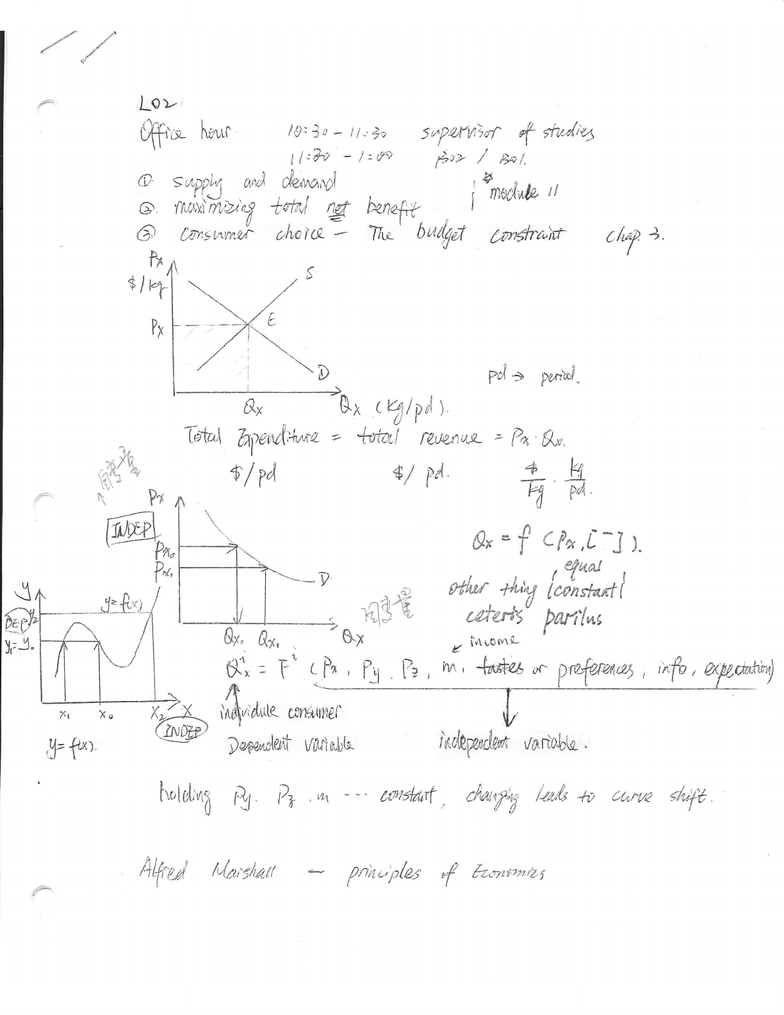 L02
Office hour 10:30-11:30 supervisor of studies
11:30-1:00 B02 / B01.
① supply and demand
module 11
② maximizing total not benefit
③ consumer choice - The budget constraint chap 3.
Px
$/kg
S
Px
E
D
pd → period.
Qx
Qx (kg/pd).
Total Expenditure = total revenue = Px·Qx.
$/pd $/pd. $/kg · kg/pd.
Px
INDEP
Qx = f (Px, [-]).
Px0
Px1
D
equal
other thing (constant)
ceteris paribus
Qx0 Qx1 Qx
y
y=f(x)
DEP y2
y1=y0
x1 x0 x2 x
INDEP
y=f(x).
income
Qxⁱ = Fⁱ (Px, Py, Pz, m, tastes or preferences, info, expectation)
individule consumer
Dependent variable
independent variable.
holding Py. Pz. m --- constant, changing leads to curve shift.
Alfred Marshall - principles of Economics